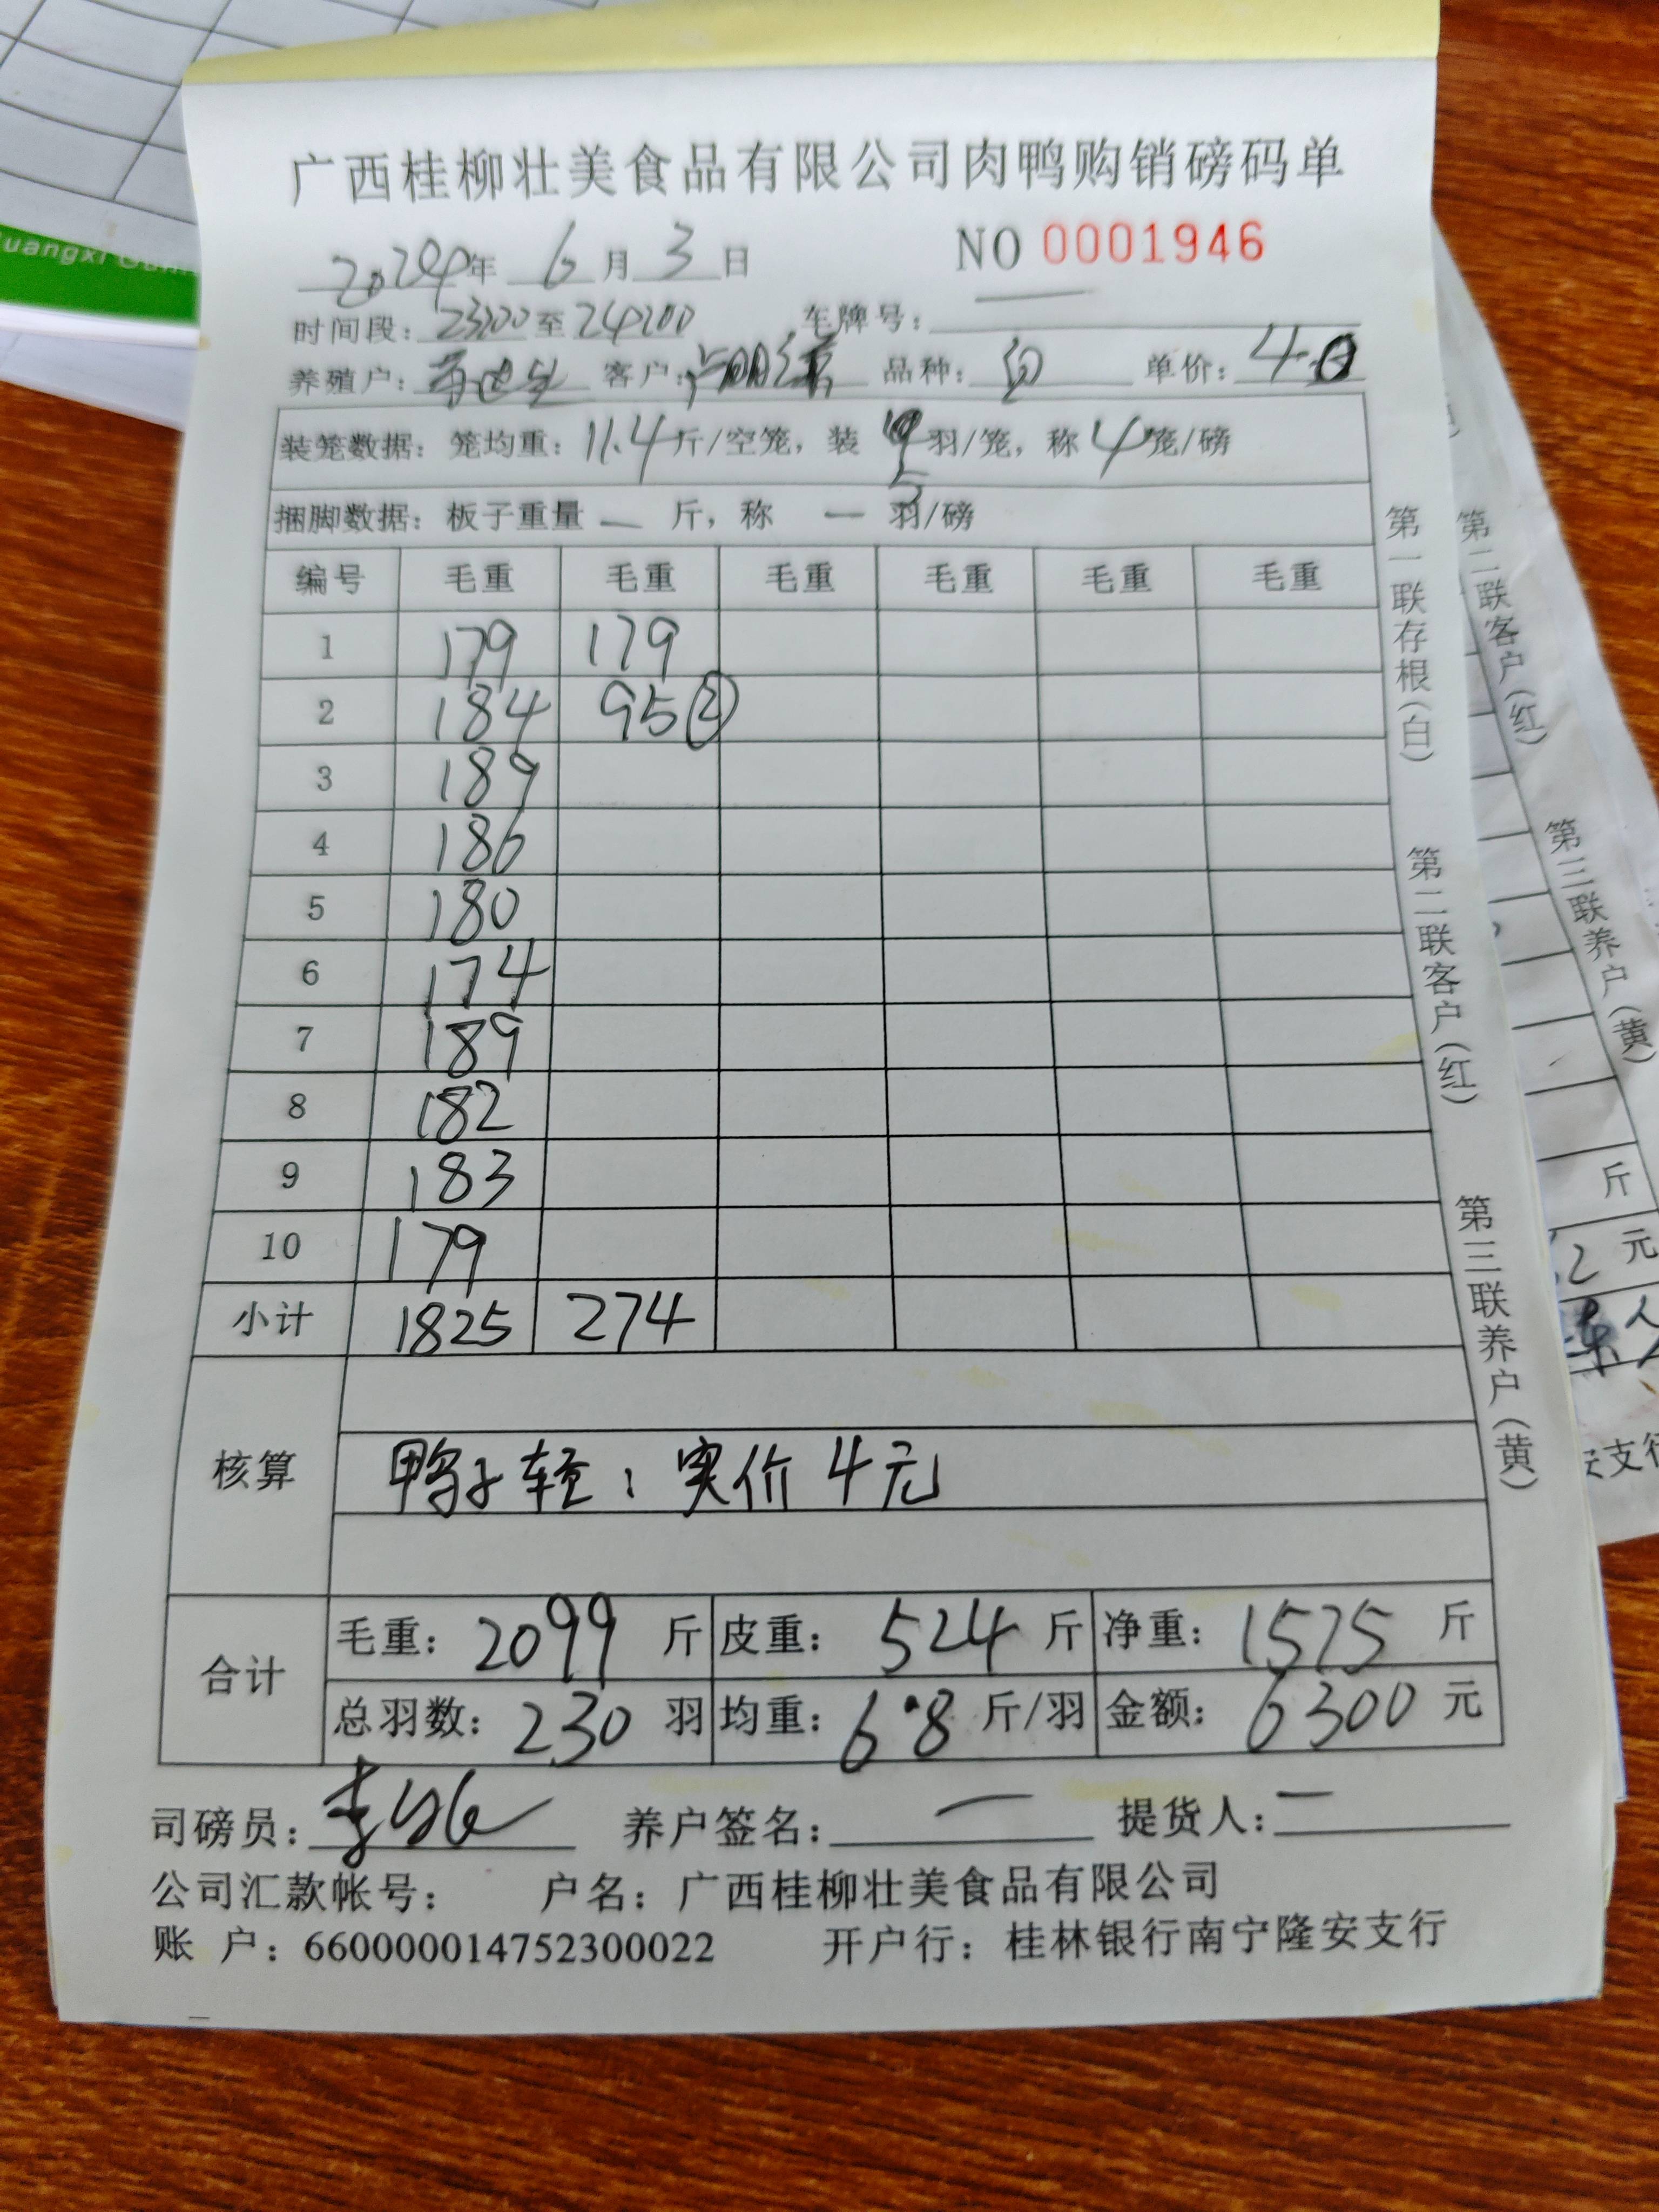 广西桂柳壮美食品有限公司肉鸭购销磅码单
2024年 6月3日 NO 0001946
时间段：23:00至24:00 车牌号：—
养殖户： 客户： 品种：白 单价：4.0
装笼数据：笼均重：11.4斤/空笼，装 5 羽/笼，称4笼/磅
捆脚数据：板子重量 — 斤，称 — 羽/磅
编号 毛重 毛重 毛重 毛重 毛重 毛重
1 179 179
2 184 95②
3 189
4 186
5 180
6 174
7 189
8 182
9 183
10 179
小计 1825 274
核算 鸭子轻：实价4元
合计 毛重：2099斤 皮重：524斤 净重：1575斤
总羽数：230羽 均重：6.8斤/羽 金额：6300元
司磅员： 养户签名：— 提货人：—
公司汇款帐号： 户名：广西桂柳壮美食品有限公司
账 户：660000014752300022 开户行：桂林银行南宁隆安支行
第一联存根(白) 第二联客户(红) 第三联养户(黄)
第二联客户(红) 第三联养户(黄)
斤
2 元
支行
uangxi